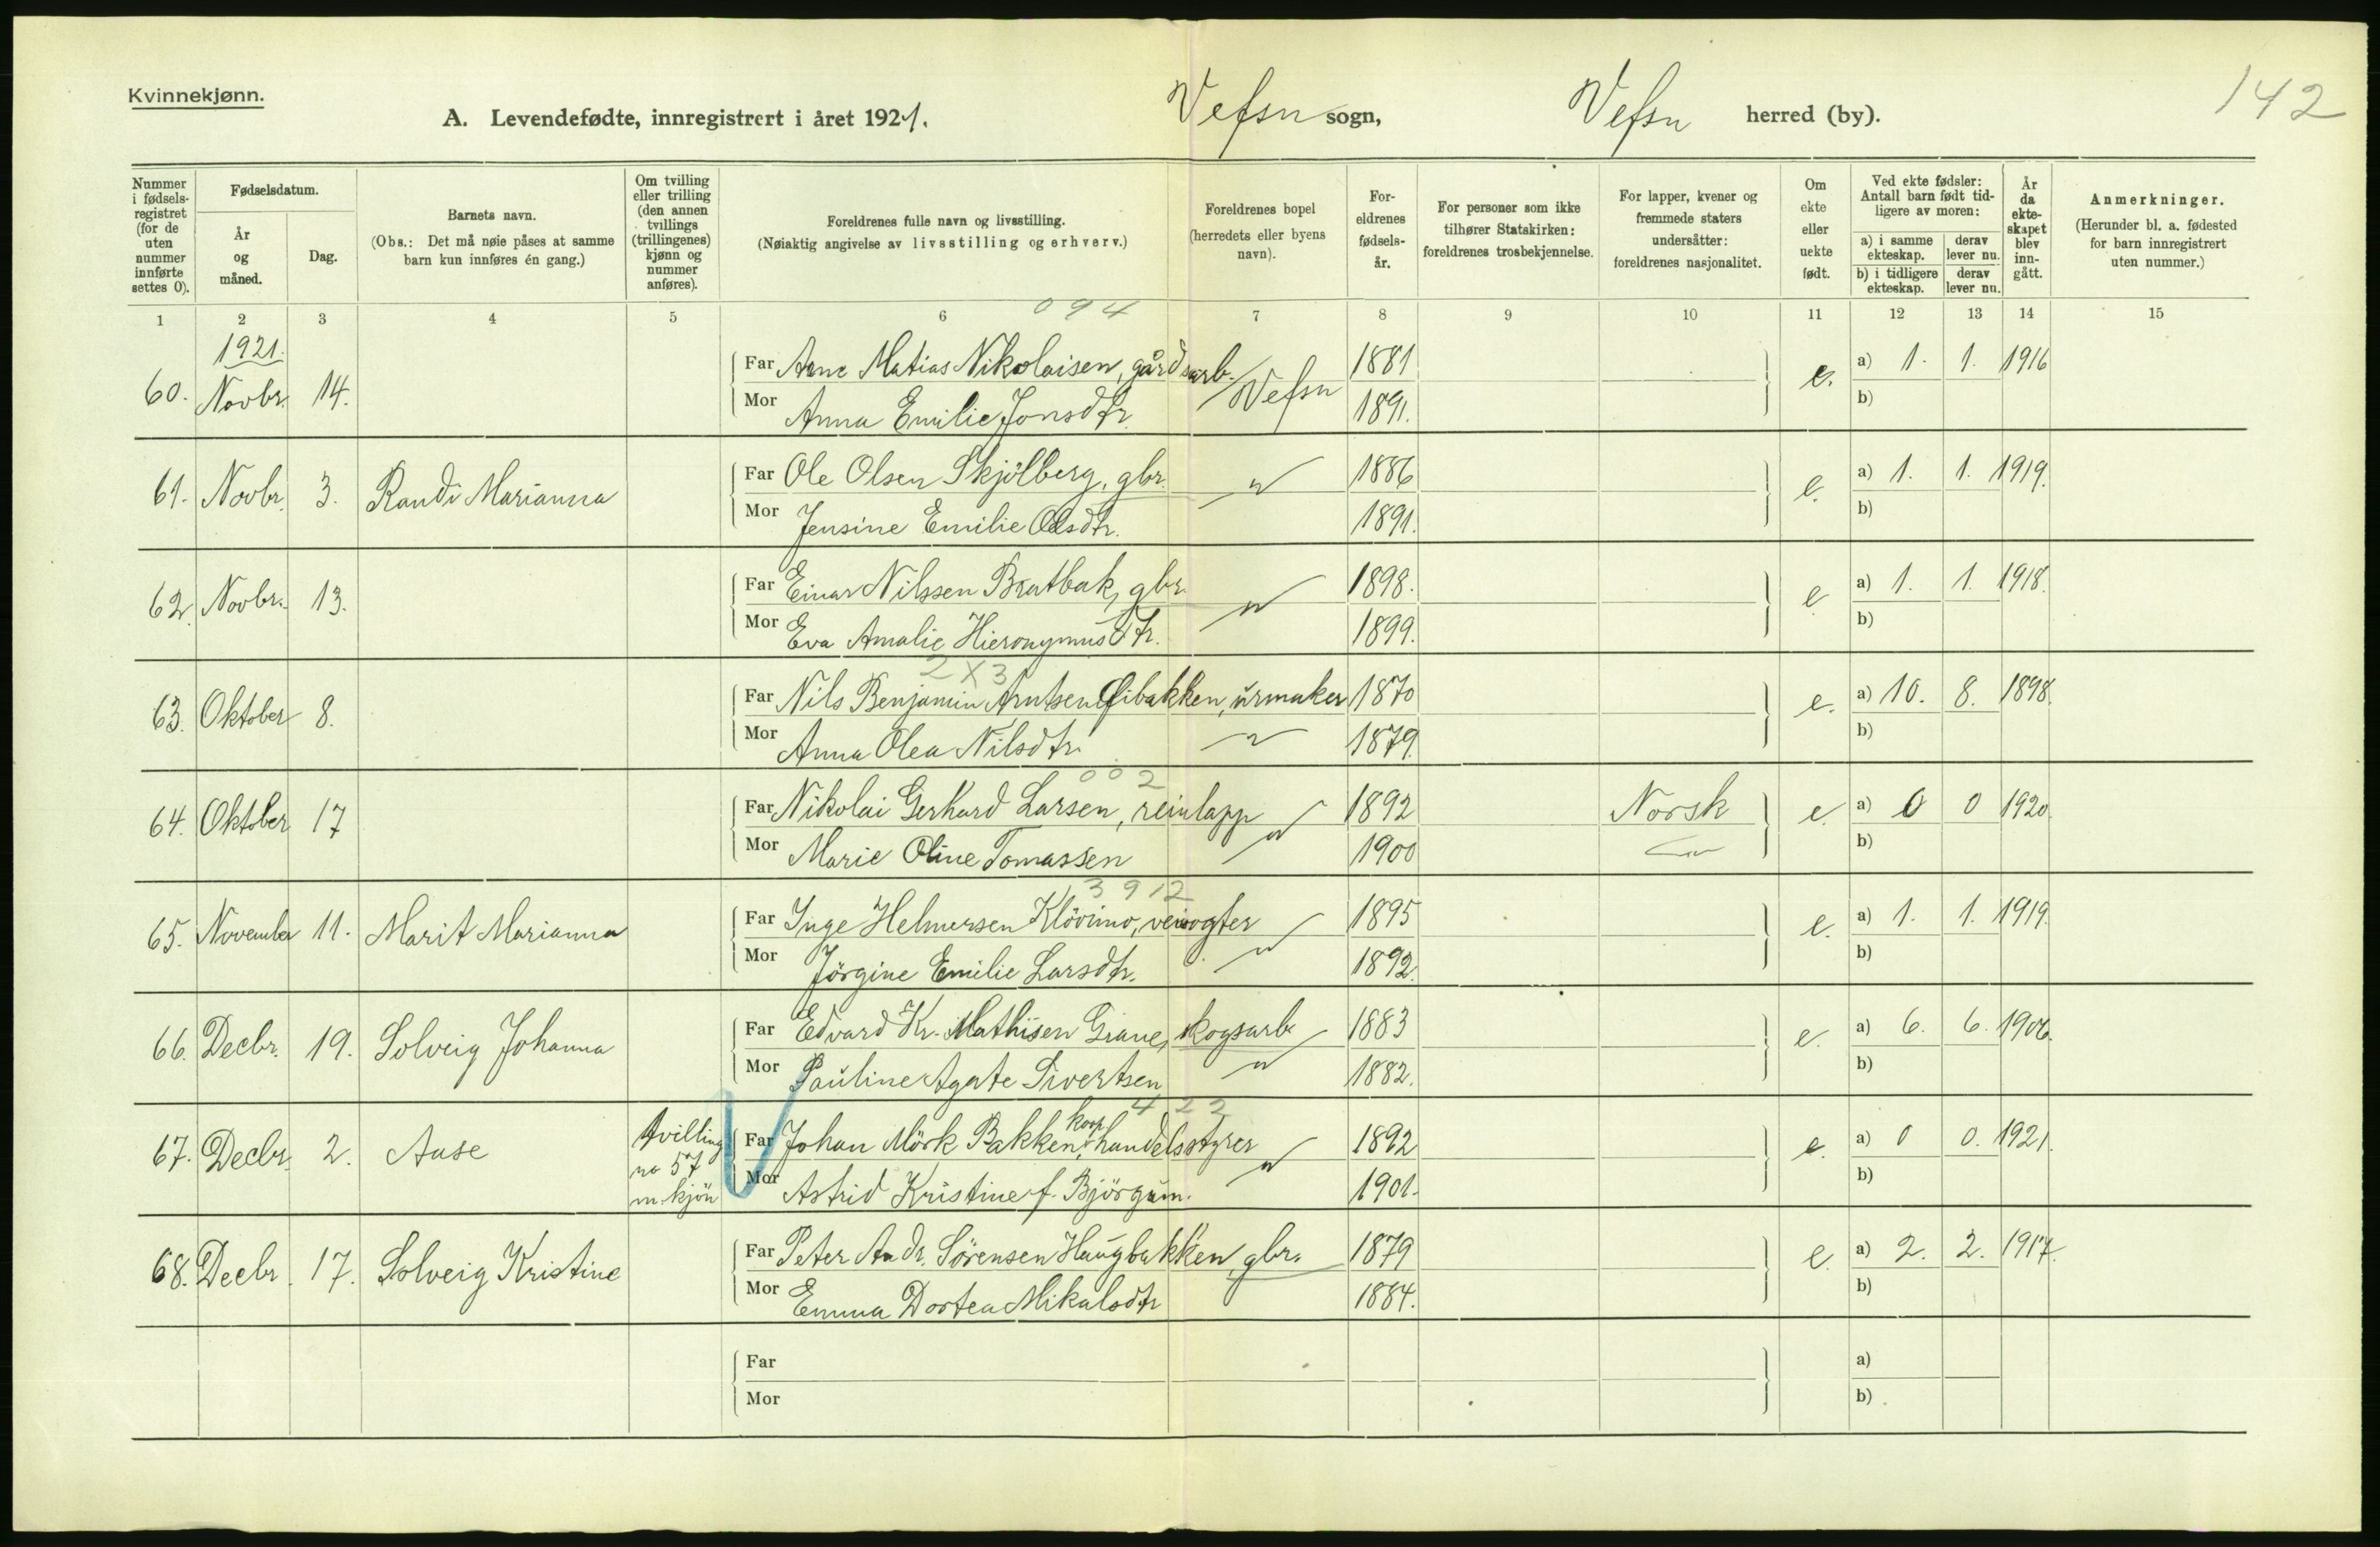 Kvinnekjønn.
142
A. Levendefødte, innregistrert i året 1921. Vefsn sogn, Vefsn herred (by).
Nummer i fødsels-registret (for de uten nummer innførte settes 0).
Fødselsdatum.
År og måned.
Dag.
Barnets navn.
(Obs.: Det må nøie påses at samme barn kun innføres én gang.)
Om tvilling eller trilling (den annen tvillings (trillingenes) kjønn og nummer anføres).
Foreldrenes fulle navn og livsstilling.
(Nøiaktig angivelse av livsstilling og erhverv.)
Foreldrenes bopel (herredets eller byens navn).
For-eldrenes fødsels-år.
For personer som ikke tilhører Statskirken: foreldrenes trosbekjennelse.
For lapper, kvener og fremmede staters undersåtter: foreldrenes nasjonalitet.
Om ekte eller uekte født.
Ved ekte fødsler: Antall barn født tid-ligere av moren:
a) i samme ekteskap. derav lever nu.
b) i tidligere ekteskap. derav lever nu.
År da ekte-skapet blev inn-gått.
Anmerkninger.
(Herunder bl. a. fødested for barn innregistrert uten nummer.)
1 2 3 4 5 6 7 8 9 10 11 12 13 14 15
094
1921.
60. Novbr. 14. Far Arne Matias Nikolaisen, gårdsarb. Vefsn 1881 e. a) 1. 1. 1916
Mor Anna Emilie Jonsdtr. 1891. b)
61. Novbr. 3. Randi Marianna Far Ole Olsen Skjölberg, gbr. " 1886 e. a) 1. 1. 1919.
Mor Jensine Emilie Olsdtr. 1891. b)
62. Novbr. 13. Far Einar Nilssen Bratbak, gbr. " 1898. e a) 1. 1. 1918.
Mor Eva Amalie Hieronymusdtr. 1899. b)
2X3
63. Oktober 8. Far Nils Benjamin Arntsen Øibakken, urmaker 1870 e. a) 10. 8. 1898.
Mor Anna Olea Nilsdtr. " 1879. b)
002
64. Oktober 17 Far Nikolai Gerhard Larsen, reinlapp " 1892 Norsk e. a) 0 0 1920.
Mor Marie Oline Tomassen 1900 " b)
3912
65. November 11. Marit Marianna Far Inge Helmersen Klövimo, veivogter " 1895 e. a) 1. 1. 1919.
Mor Jörgine Emilie Larsdtr. 1892. b)
66. Decbr. 19. Solveig Johanna Far Edvard Kr. Mathisen Grane, skogsarb " 1883 e. a) 6. 6. 1906.
Mor Pauline Agate Sivertsen 1882. b)
422
67. Decbr. 2. Aase tvilling no 57 m. kjön Far Johan Mörk Bakken, koop. handelsstyrer " 1892 e. a) 0 0. 1921.
Mor Astrid Kristine f. Björgum. 1901. b)
68. Decbr. 17. Solveig Kristine Far Peter Andr. Sörensen Haugbakken, gbr. 1879 e. a) 2. 2. 1917.
Mor Emma Dortea Mikalsdtr 1884. b)
Far a)
Mor b)